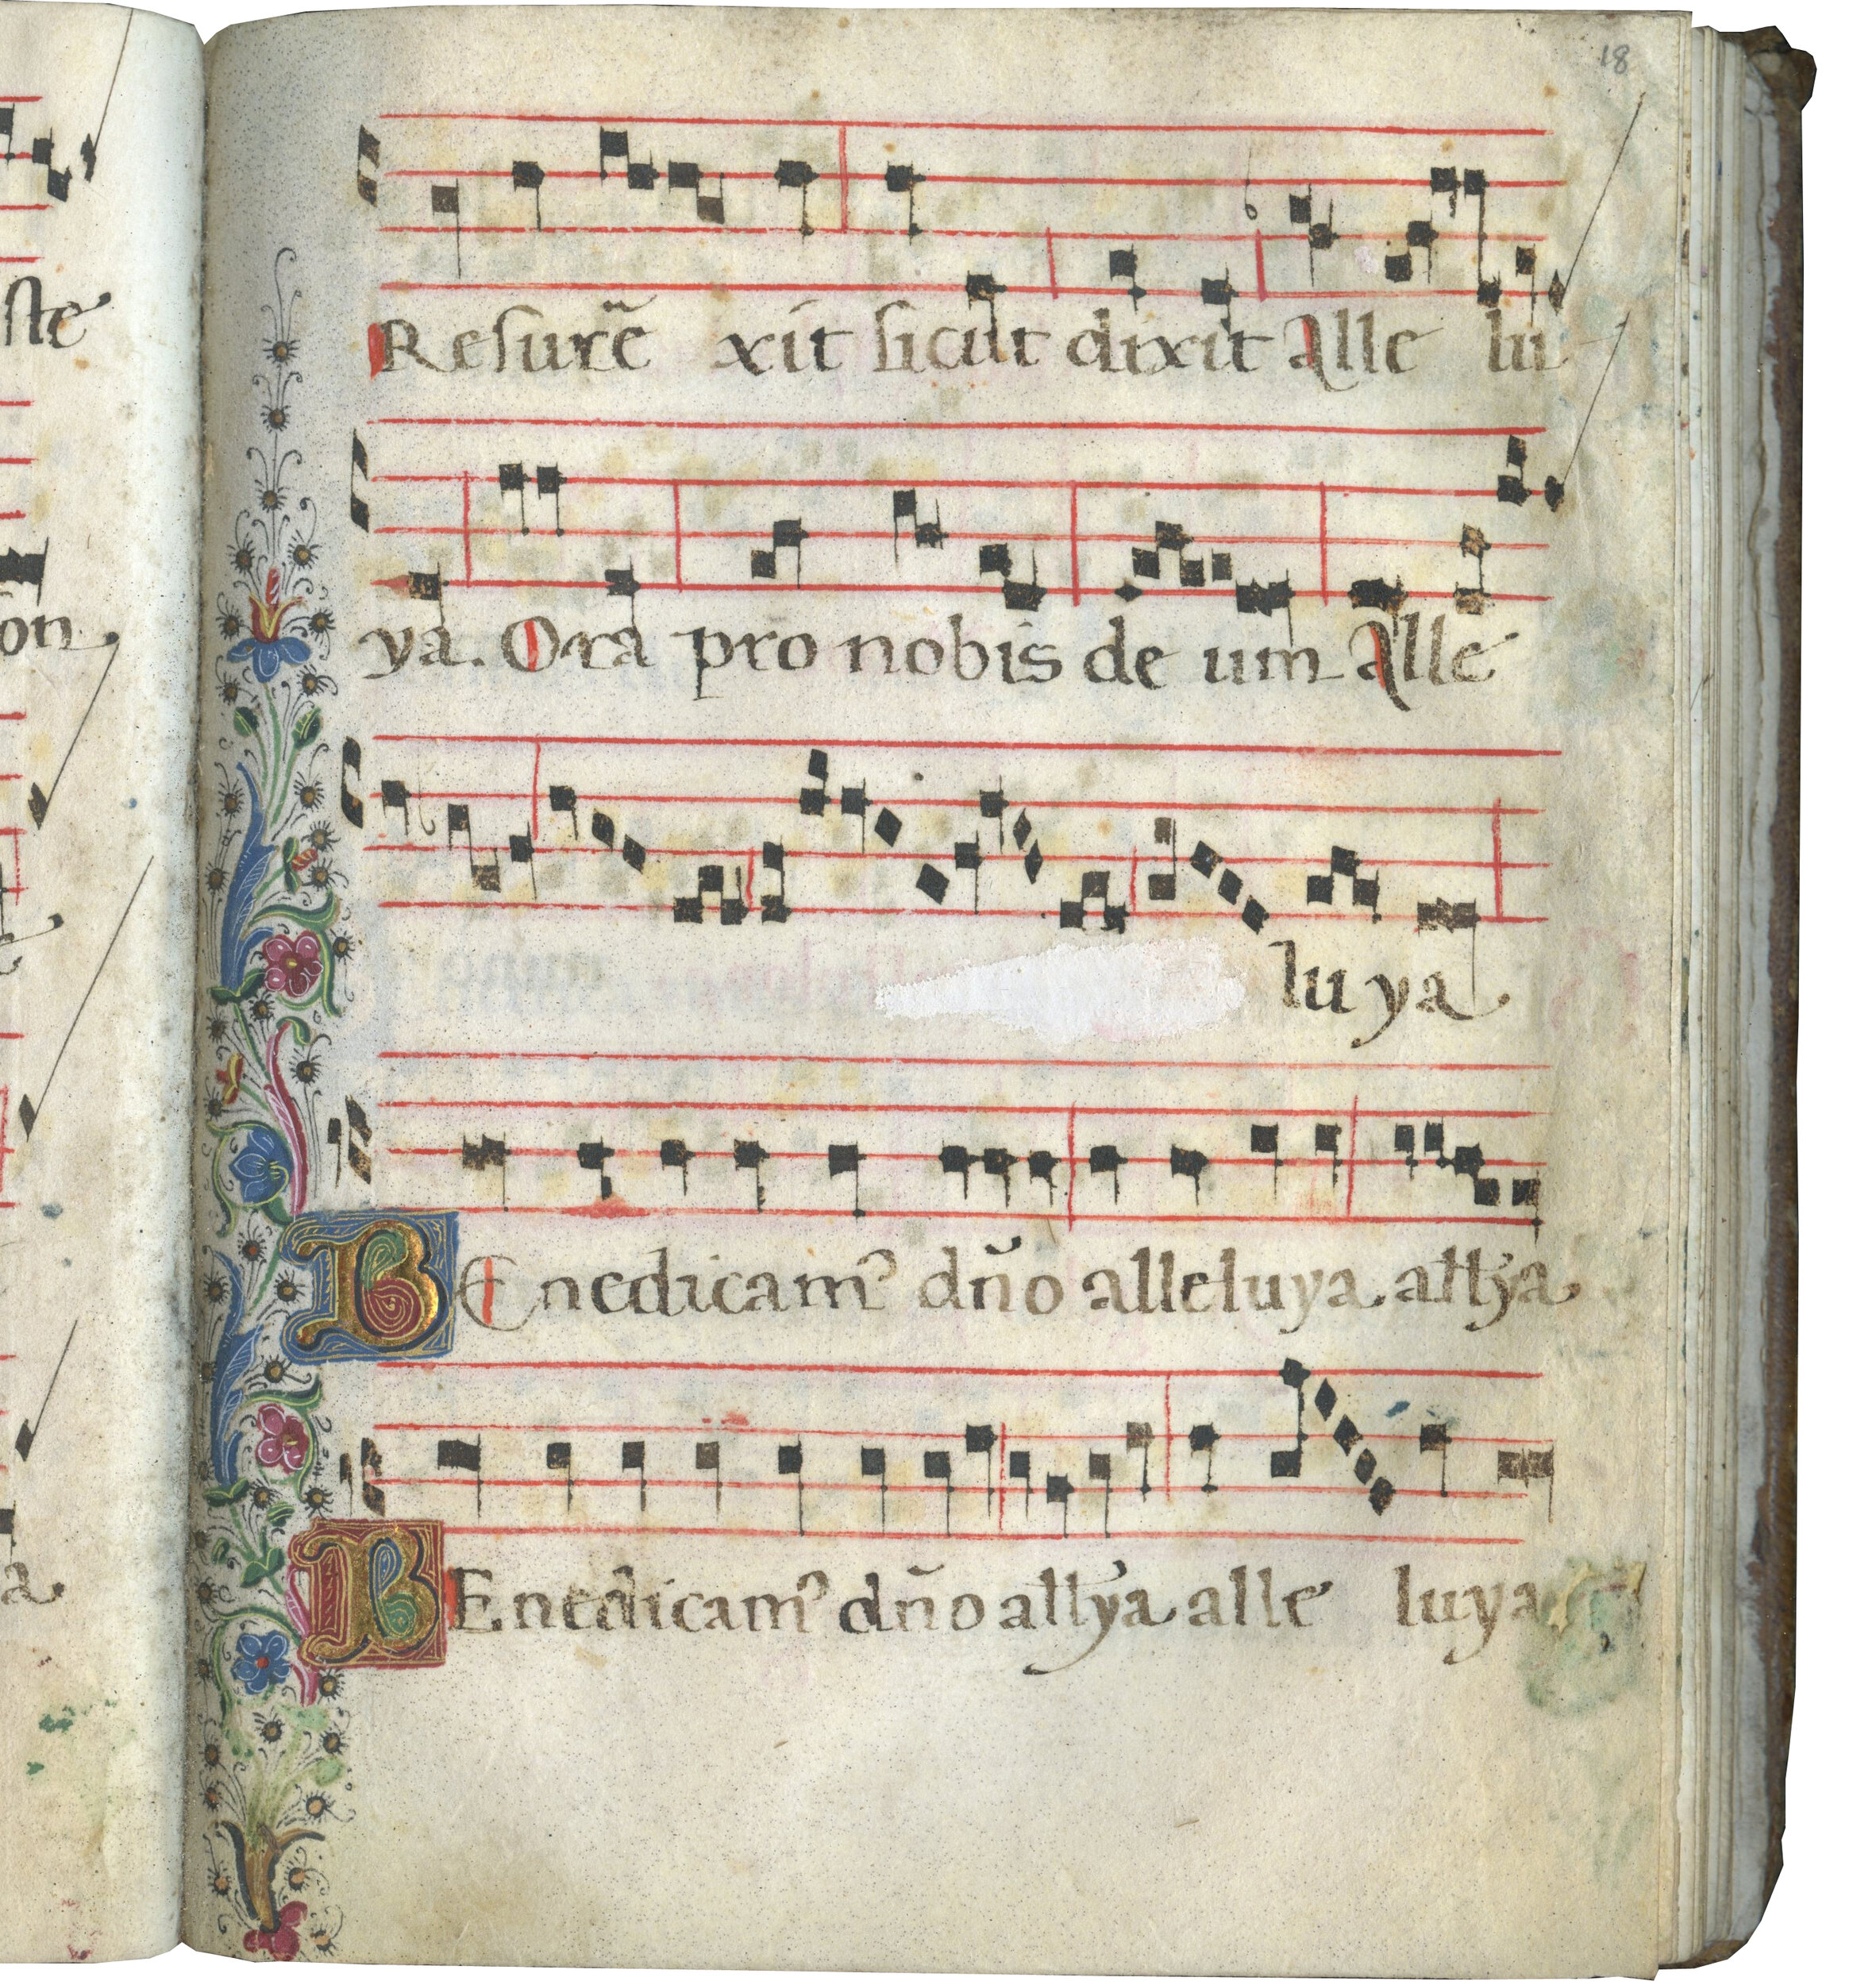 18
ste
Resurrẽ xit sicut dixit Alle lu
ya. Ora pro nobis de um Alle
on
lu ya
BEnedicamꝰ dño alleluya allʼya
BEnedicamꝰ dño allʼya alle luya
a